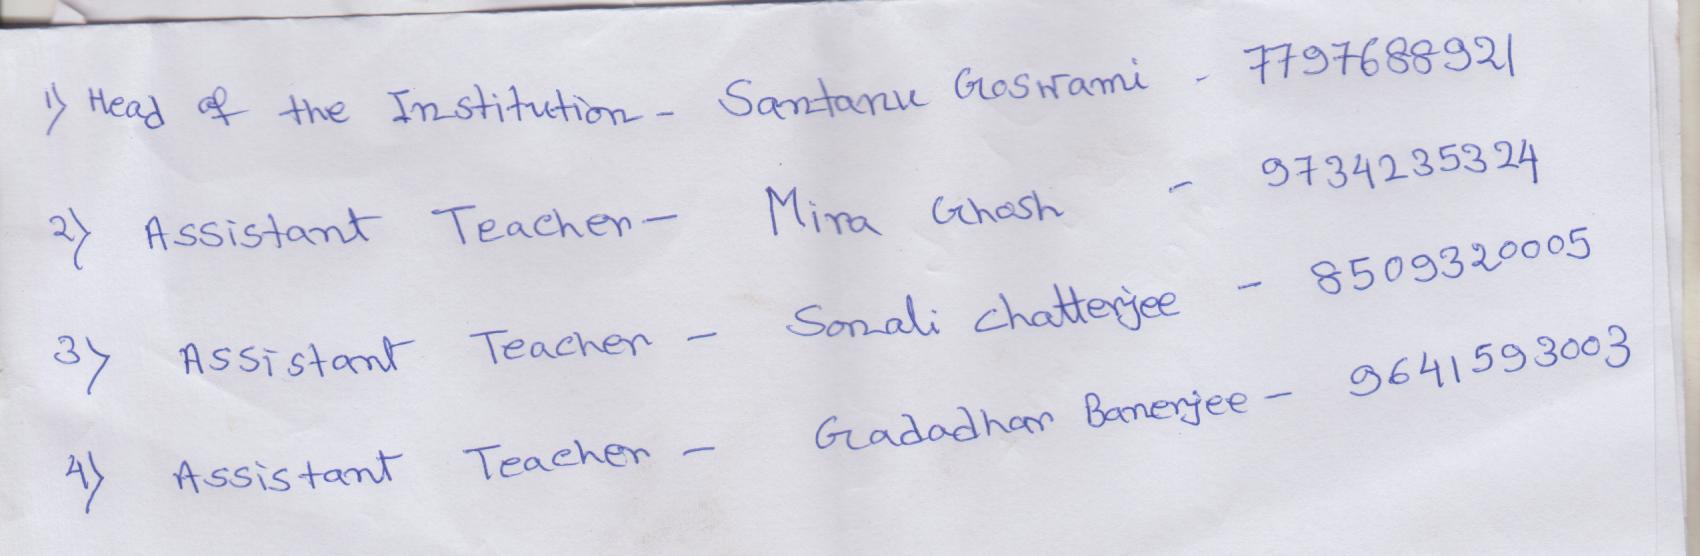 1) Head of the Institution - Santanu Goswami - 7797688921
2) Assistant Teacher - Mira Ghosh - 9734235324
3) Assistant Teacher - Sonali Chatterjee - 8509320005
4) Assistant Teacher - Gadadhar Banerjee - 9641593003